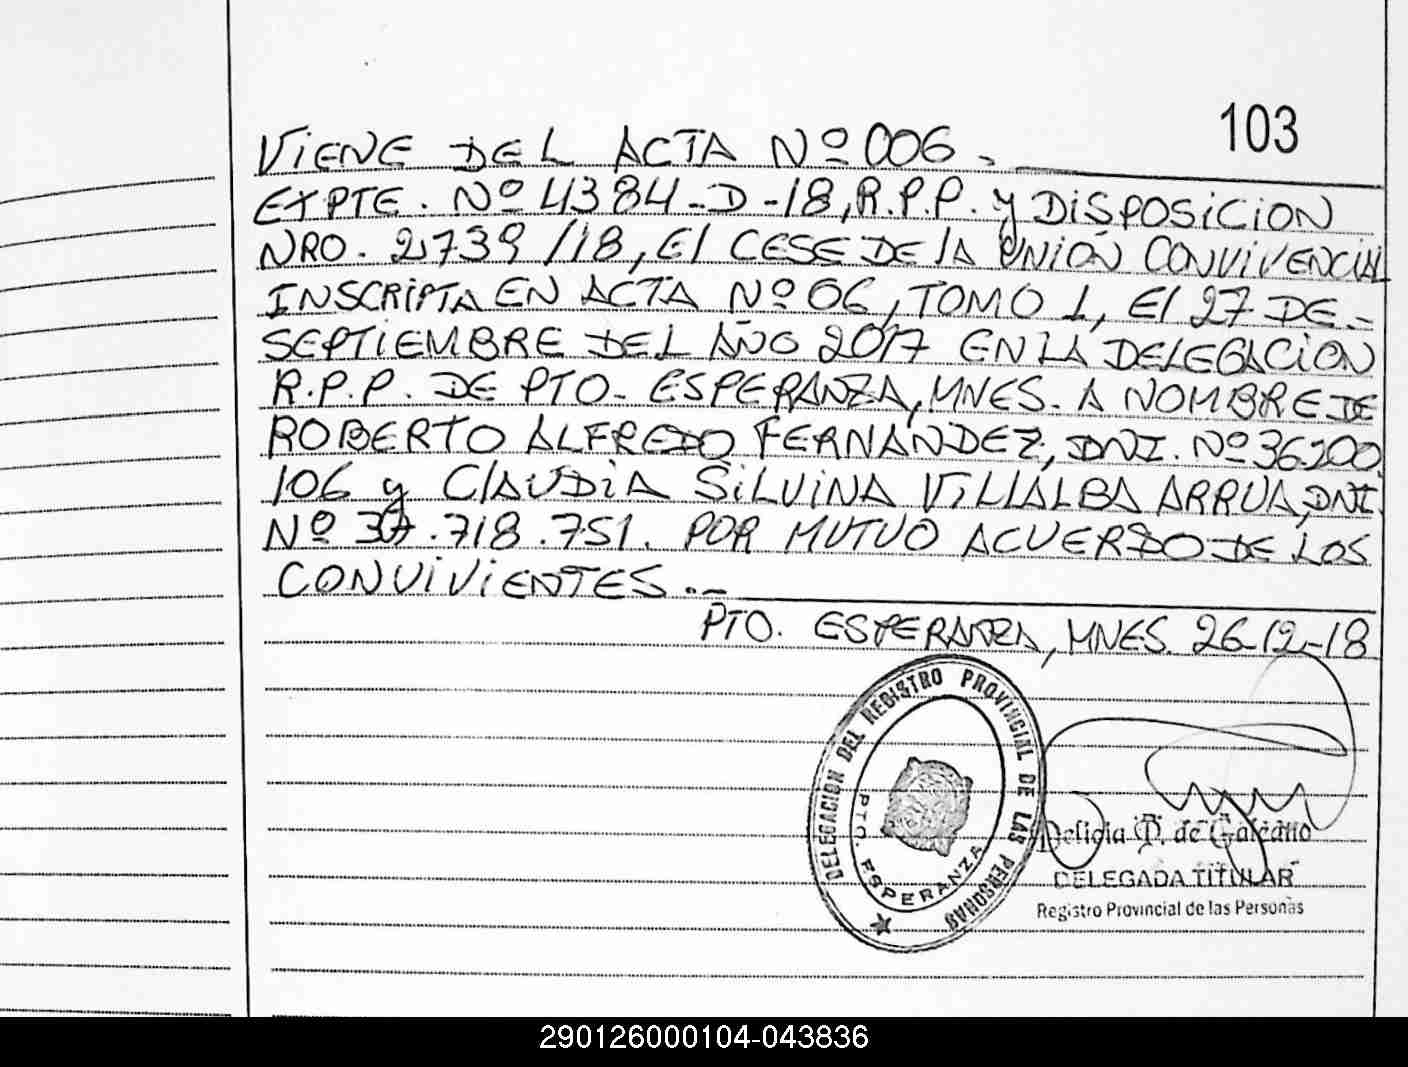 103
VIENE DEL ACTA Nº 006.
EXPTE. Nº 4384-D-18, R.P.P. y DISPOSICION
NRO. 2739/18, El CESE DE lA UNIÓN CONVIVENCIAL
INSCRIPTA EN ACTA Nº 06, TOMO 1, El 27 DE.-
SEPTIEMBRE DEL AÑO 2017 EN LA DELEGACION
R.P.P. DE PTO. ESPERANZA, MNES. A NOMBRE DE
ROBERTO ALFREDO FERNANDEZ, DNI. Nº 36.200.
106 y ClAUDIA SILVINA VILLALBA ARRUA, DNI.
Nº 37.718.751. POR MUTUO ACUERDO DE LOS
CONVIVIENTES.-
PTO. ESPERANZA, MNES. 26-12-18
DELEGACION DEL REGISTRO PROVINCIAL DE LAS PERSONAS
PTO. ESPERANZA
de Galeano
DELEGADA TITULAR
Registro Provincial de las Personas
290126000104-043836